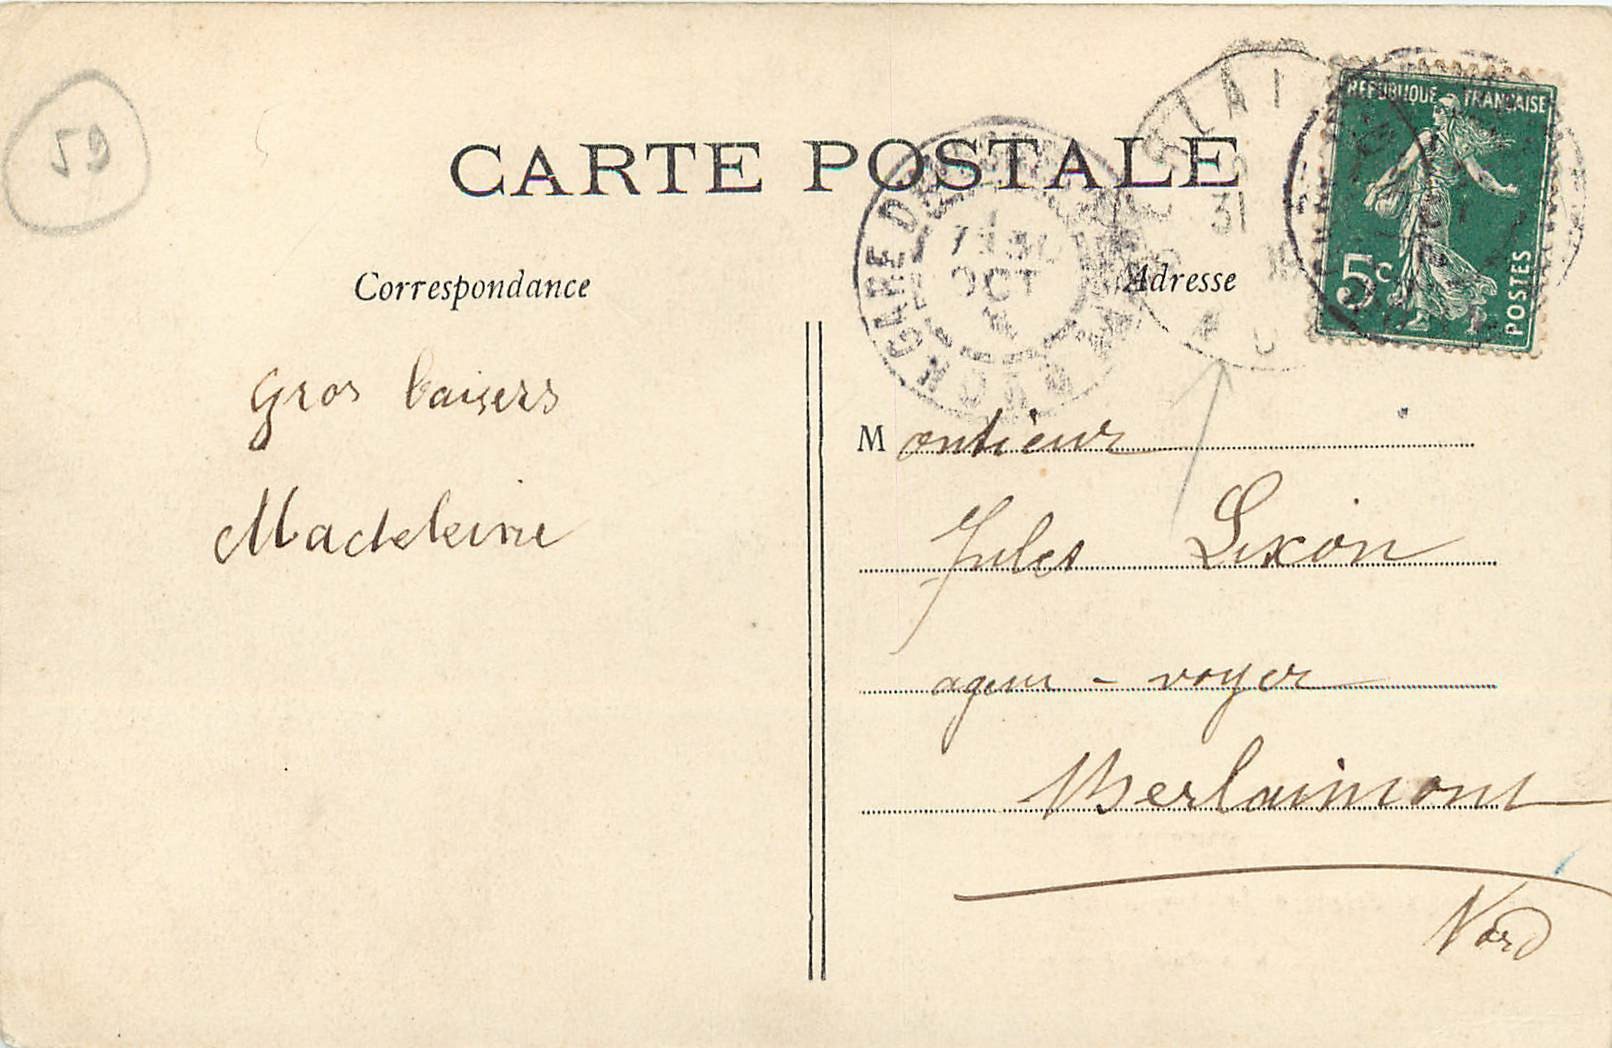 59
CARTE POSTALE
RÉPUBLIQUE FRANÇAISE
5c
POSTES
GARE DE
OCT
31
Correspondance
Adresse
Gros baisers
Madeleine
Monsieur
Jules Lixon
agent-voyer
Berlaimont
Nord